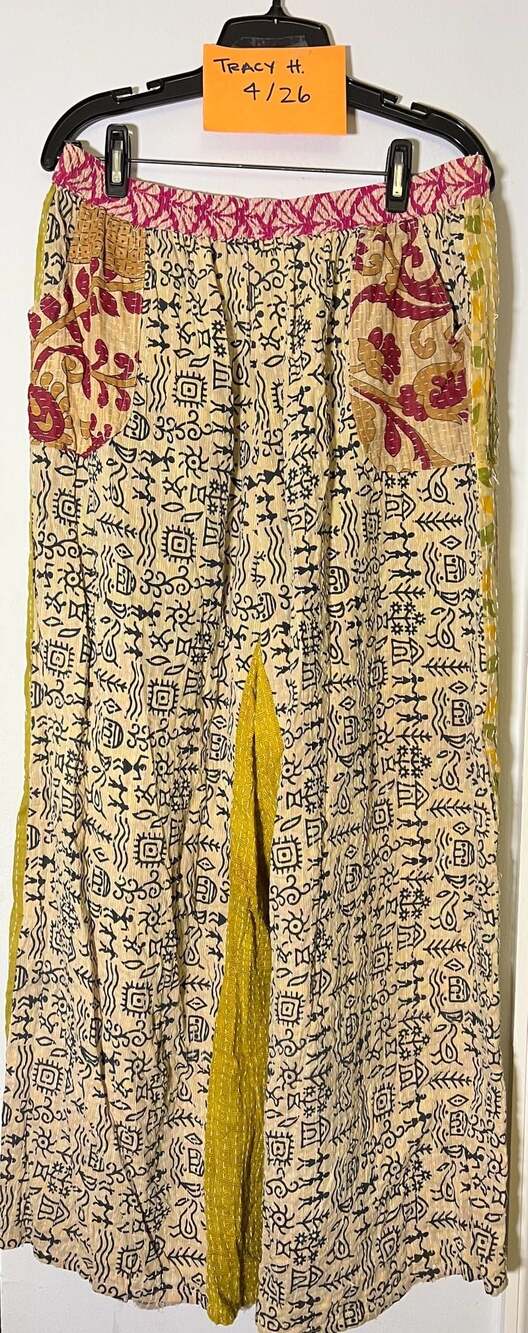 TRACY H.
4/26